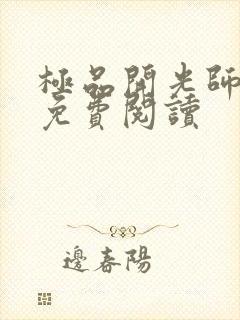 極品開光師
免費閱讀
邊春陽